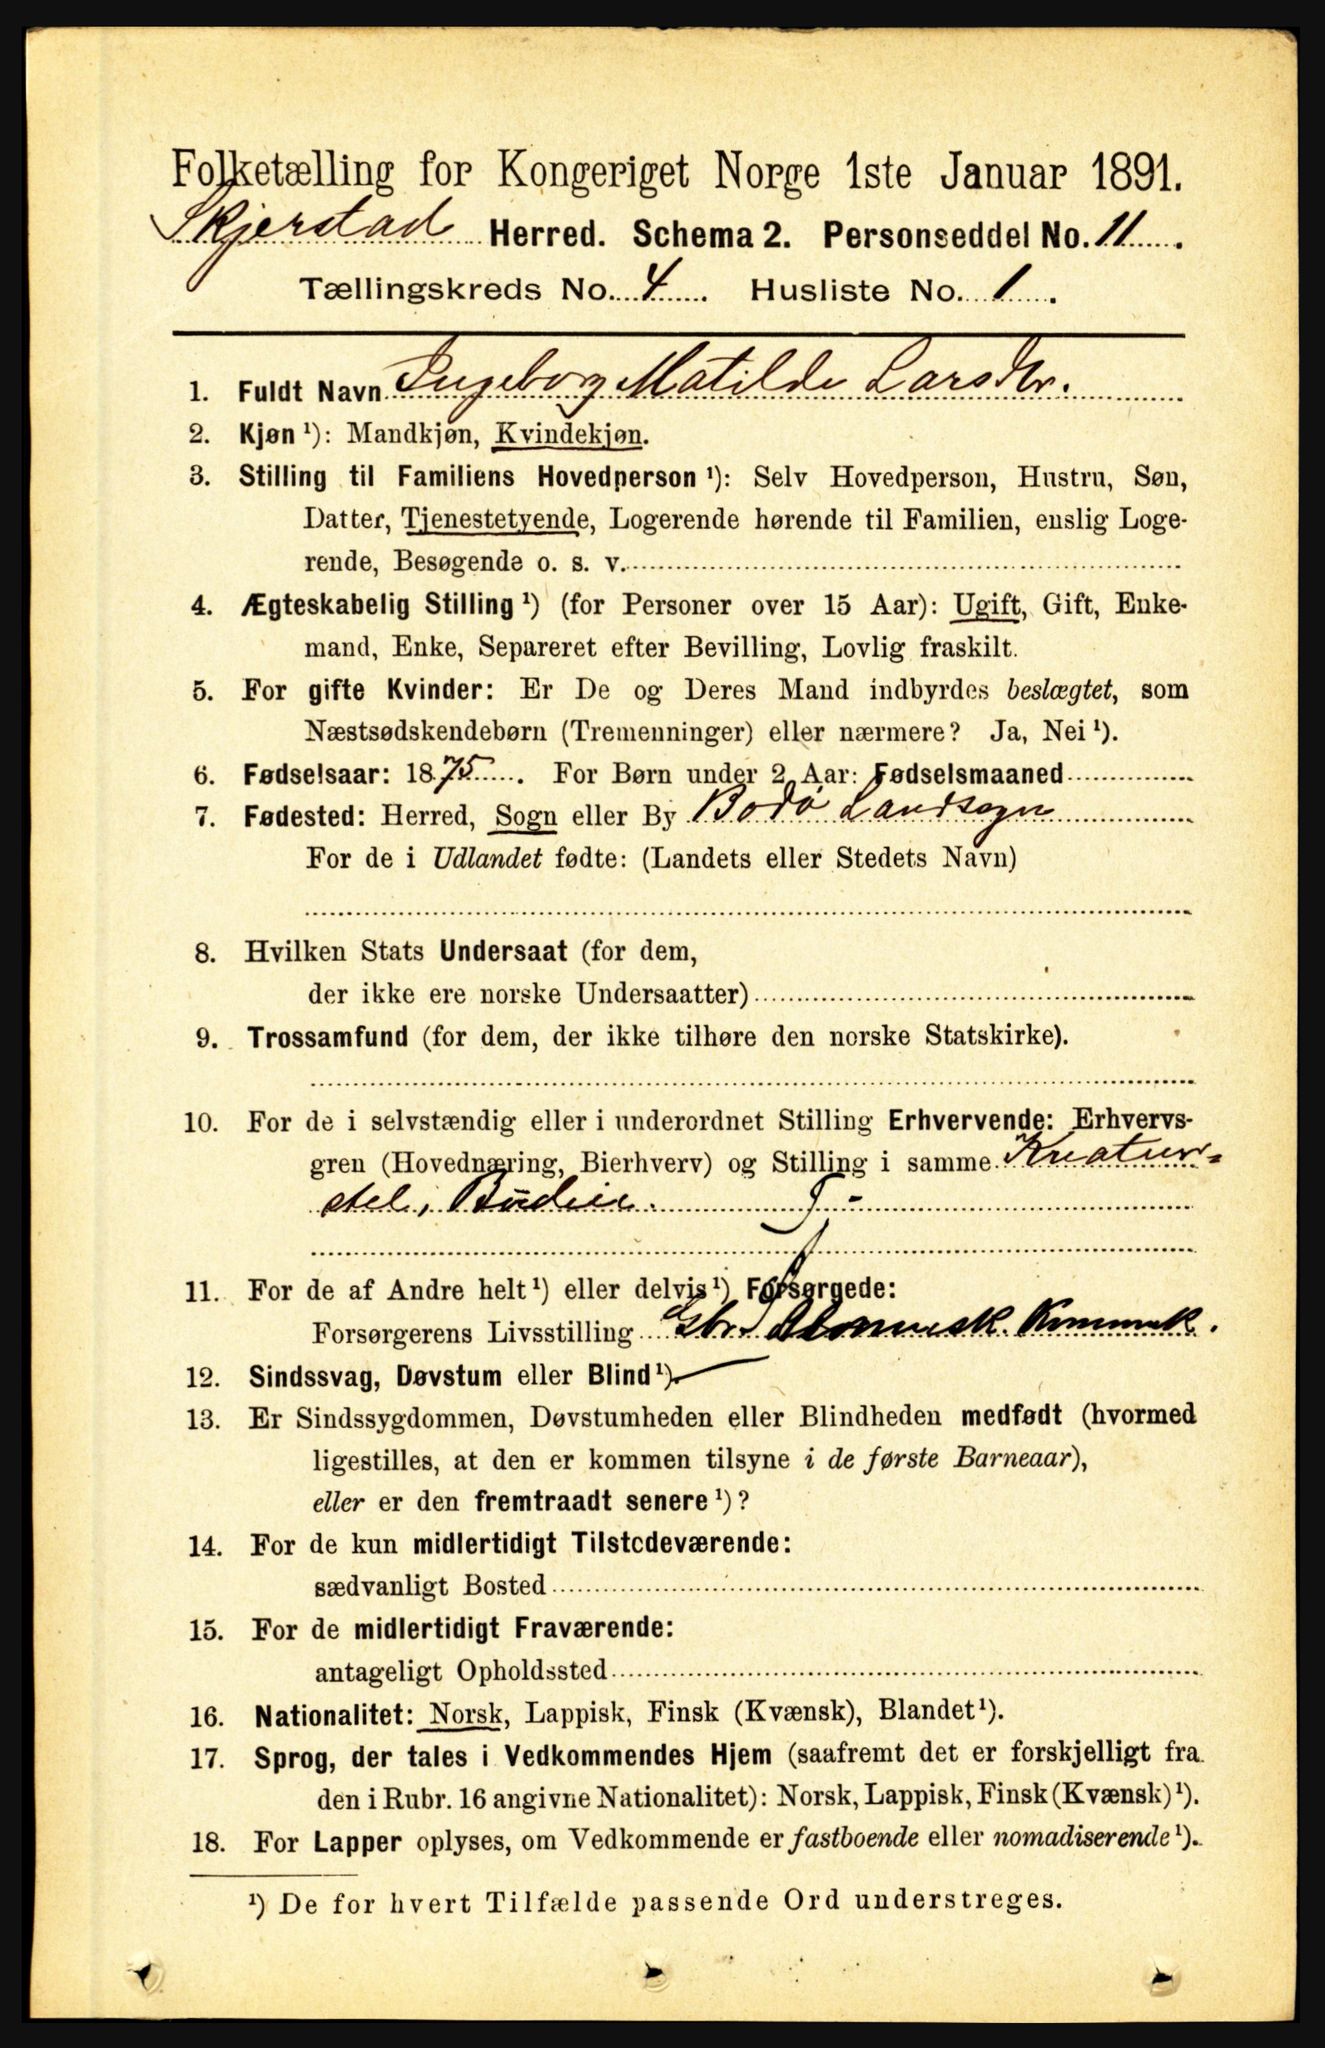 Folketælling for Kongeriget Norge 1ste Januar 1891.
Skjerstad Herred. Schema 2. Personseddel No. 11
Tællingskreds No. 4 Husliste No. 1.
1. Fuldt Navn Ingeborg Matilde Larsdtr.
2. Kjøn ¹): Mandkjøn, Kvindekjøn.
3. Stilling til Familiens Hovedperson ¹): Selv Hovedperson, Hustru, Søn,
Datter, Tjenestetyende, Logerende hørende til Familien, enslig Loge-
rende, Besøgende o. s. v.
4. Ægteskabelig Stilling ¹) (for Personer over 15 Aar): Ugift, Gift, Enke-
mand, Enke, Separeret efter Bevilling, Lovlig fraskilt.
5. For gifte Kvinder: Er De og Deres Mand indbyrdes beslægtet, som
Næstsødskendebørn (Tremenninger) eller nærmere? Ja, Nei ¹).
6. Fødselsaar: 1875. For Børn under 2 Aar: Fødselsmaaned
7. Fødested: Herred, Sogn eller By Bodø Landsogn
For de i Udlandet fødte: (Landets eller Stedets Navn)
8. Hvilken Stats Undersaat (for dem,
der ikke ere norske Undersaatter)
9. Trossamfund (for dem, der ikke tilhøre den norske Statskirke).
10. For de i selvstændig eller i underordnet Stilling Erhvervende: Erhvervs-
gren (Hovednæring, Bierhverv) og Stilling i samme Kreatur-
stel, Budeie.
11. For de af Andre helt ¹) eller delvis ¹) Forsørgede:
Forsørgerens Livsstilling
12. Sindssvag, Døvstum eller Blind ¹).
13. Er Sindssygdommen, Døvstumheden eller Blindheden medfødt (hvormed
ligestilles, at den er kommen tilsyne i de første Barneaar),
eller er den fremtraadt senere ¹)?
14. For de kun midlertidigt Tilstedeværende:
sædvanligt Bosted
15. For de midlertidigt Fraværende:
antageligt Opholdssted
16. Nationalitet: Norsk, Lappisk, Finsk (Kvænsk), Blandet ¹).
17. Sprog, der tales i Vedkommendes Hjem (saafremt det er forskjelligt fra
den i Rubr. 16 angivne Nationalitet): Norsk, Lappisk, Finsk (Kvænsk) ¹).
18. For Lapper oplyses, om Vedkommende er fastboende eller nomadiserende ¹).
¹) De for hvert Tilfælde passende Ord understreges.